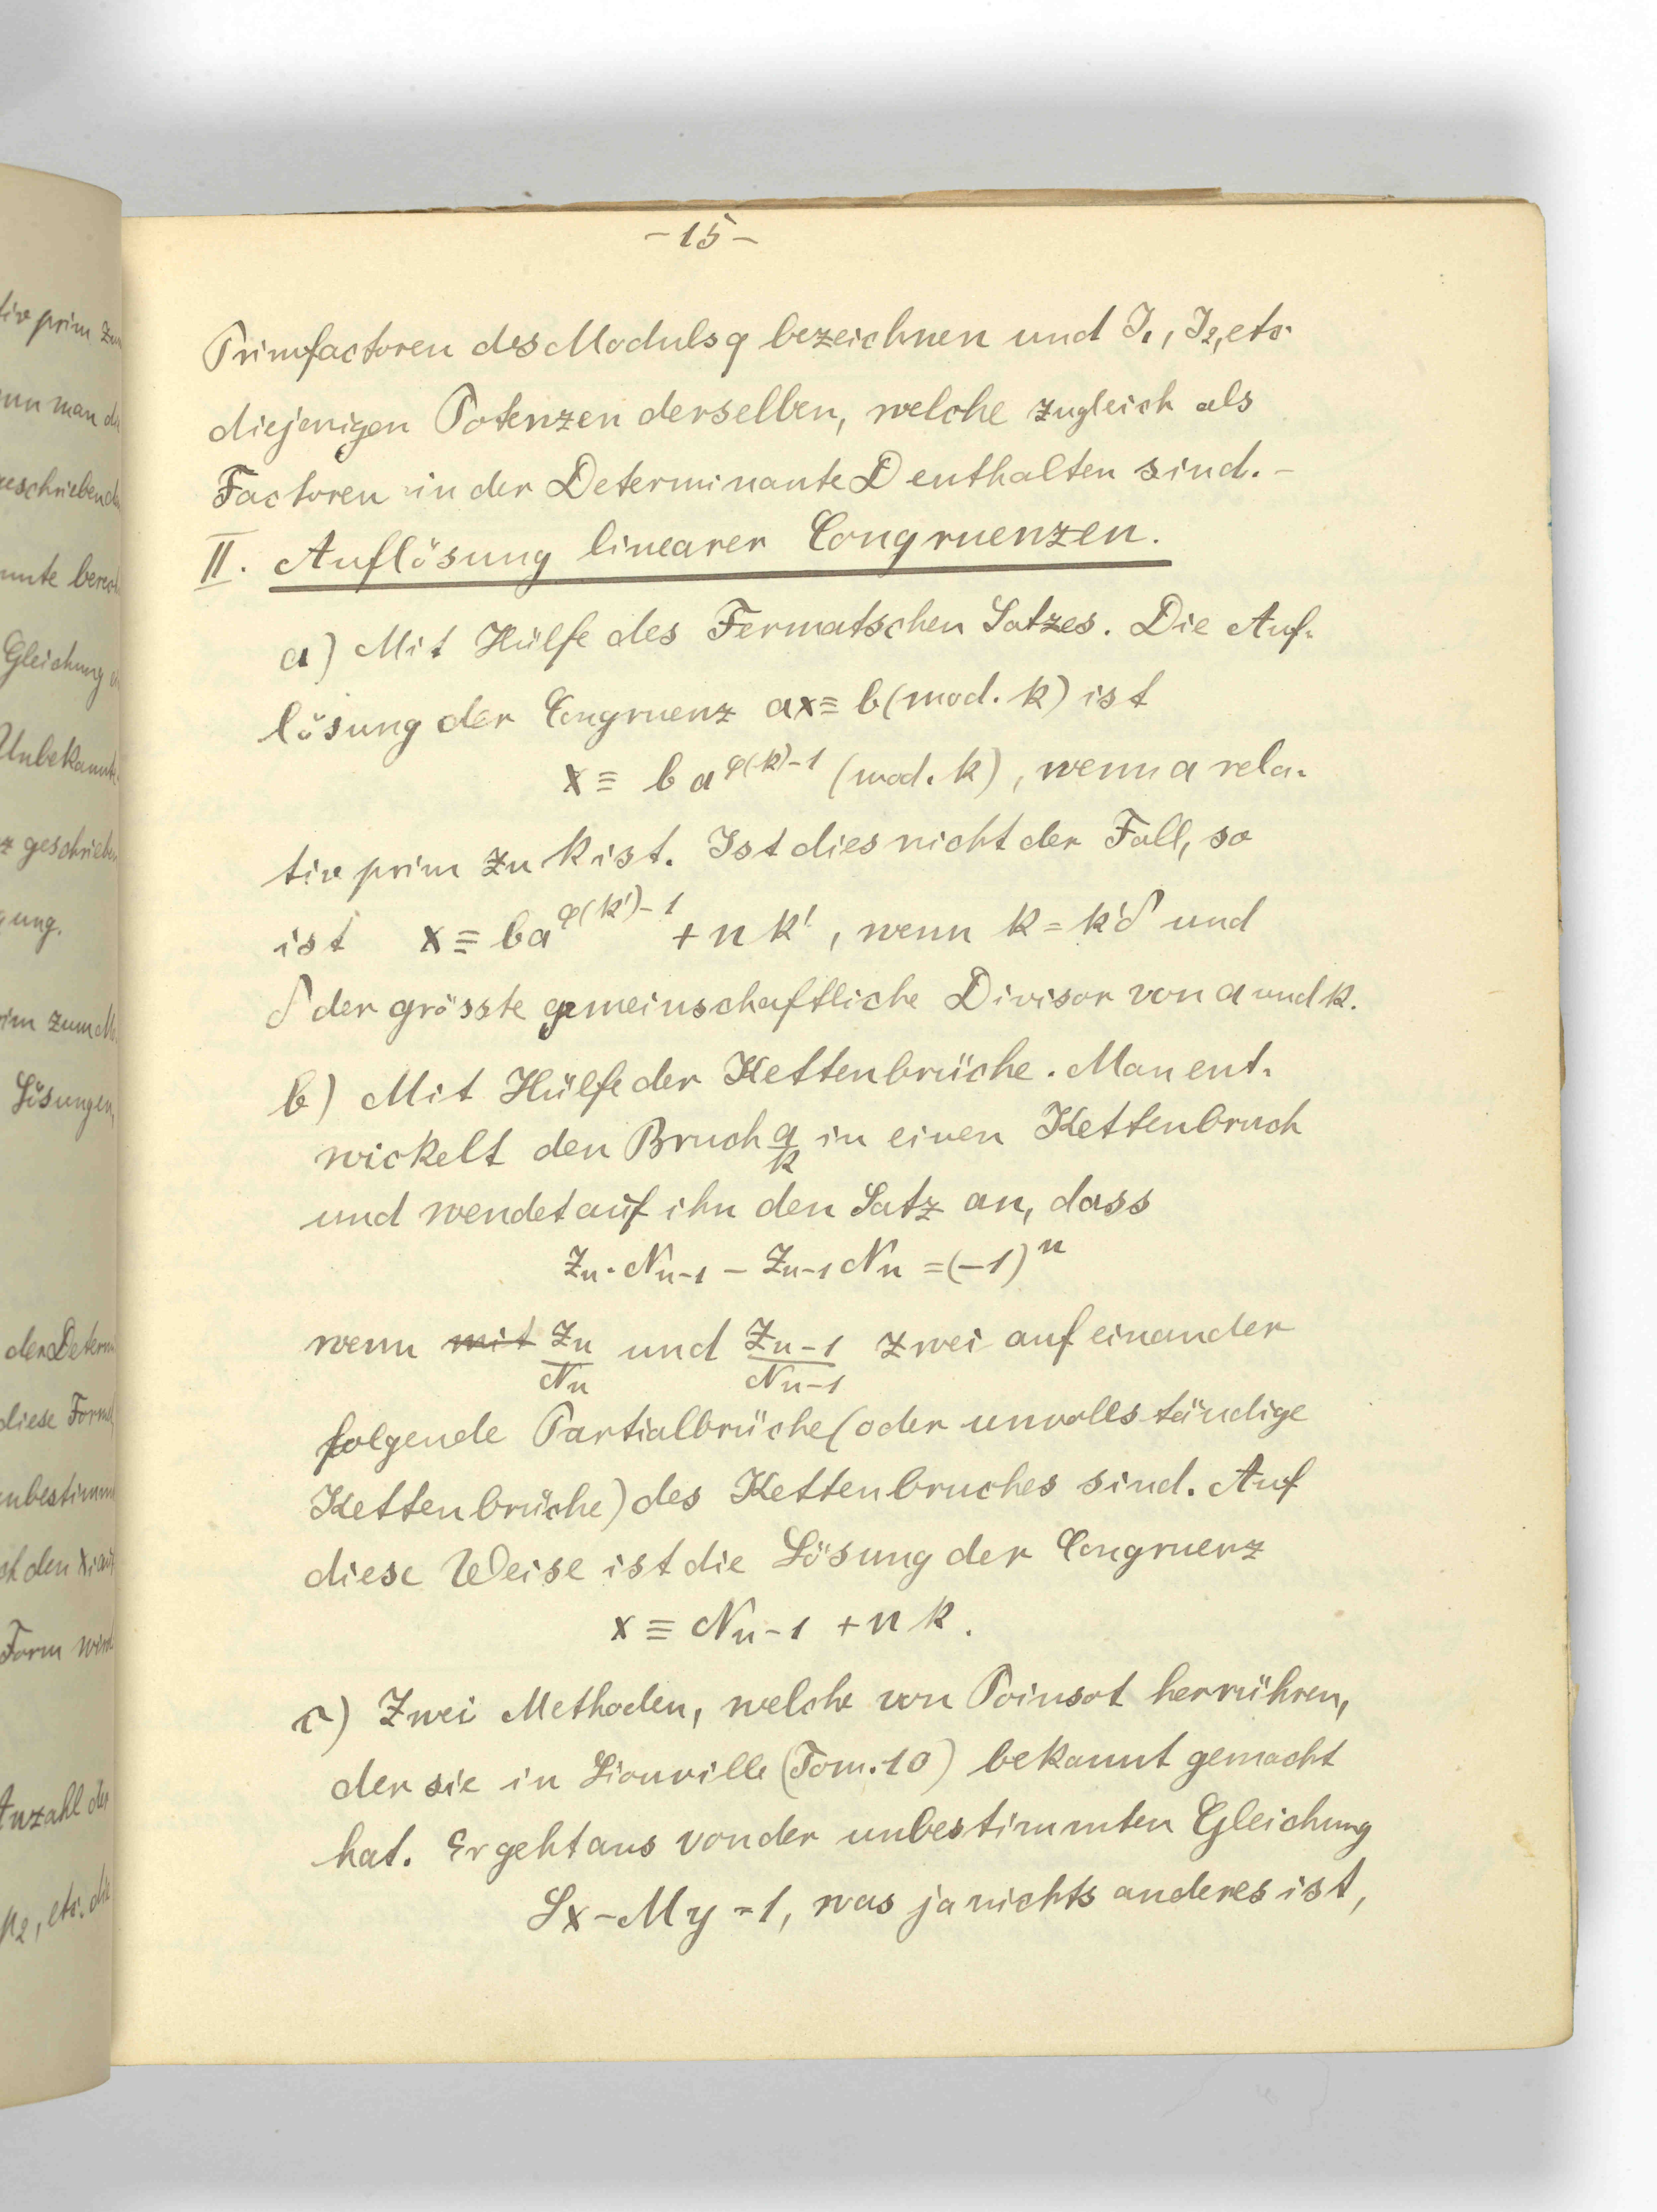 tiv prim zum
nun man
geschrieben
Gleichung
Unbekannte
geschrieben
gung.
prim zum
Lösungen,
der Determi
diese Form
unbestimm
Form wird
Anzahl der
μ2, etc. die
-15-
Primfactoren des Moduls q bezeichnen und J1, J2, etc.
diejenigen Potenzen derselben, welche zugleich als
Factoren in der Determinante D enthalten sind. -
II. Auflösung linearer Congruenzen.
a) Mit Hülfe des Fermatschen Satzes. Die Auf-
lösung der Congruenz ax ≡ b (mod. k) ist
x ≡ b a^φ(k)-1 (mod. k), wenn a rela-
tiv prim zu k ist. Ist dies nicht der Fall, so
ist x ≡ ba^φ(k')-1 + n k', wenn k = k'δ und
δ der grösste gemeinschaftliche Divisor von a und k.
b) Mit Hülfe der Kettenbrüche. Man ent-
wickelt den Bruch a/k in einen Kettenbruch
und wendet auf ihn den Satz an, dass
Zn · Nn-1 - Zn-1 Nn = (-1)^n
wenn mit Zn/Nn und Zn-1/Nn-1 zwei aufeinander
folgende Partialbrüche (oder unvollständige
Kettenbrüche) des Kettenbruches sind. Auf
diese Weise ist die Lösung der Congruenz
x ≡ Nn-1 + n k.
c) Zwei Methoden, welche von Poinsot herrühren,
der sie in Liouville (Tom. 10) bekannt gemacht
hat. Er geht aus von der unbestimmten Gleichung
Lx - My = 1, was ja nichts anderes ist,